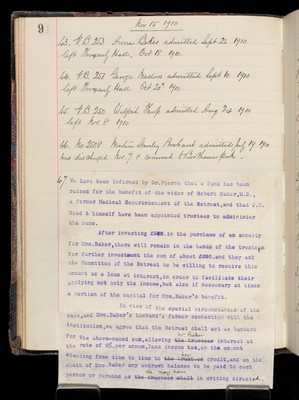 9
Nov 15 1910
63. V.B. 253 Anna Baker admitted Sept. 22 1910
left Throxenby Hall, Oct 18 1910.
64. V.B. 251 George admitted Sept 10. 1910
left Throxenby Hall Oct 20th 1910
65. V.B. 250 Wilfrid admitted Aug 24 1910
left Nov. 8 1910
66. No 2508 Stanley admitted July 19 1910
was discharged Nov. 7 &
67. We have been informed by Dr.Pierce that a fund has been
raised for the benefit of the widow of Robert Baker,M.D.,
a former Medical Superintendent of the Retreat,and that J.H.
Hood & himself have been appointed trustees to administer
the same.
After investing in the purchase of an annuity
for Mrs.Baker,there will remain in the hands of the trustees
for further investment the sum of about and they ask
the Committee of the Retreat to be willing to receive this
amount as a loan at interest,in order to facilitate their
applying not only the income,but also if necessary at times
a portion of the capital for Mrs.Baker's benefit.
In view of the special circumstances of the
case,and Mrs.Baker's husband's former connection with the
institution,we agree that the Retreat shall act as bankers
for the above-named sum,allowing the trustees interest at
the rate of 5% per annum,less income tax,on the amount
standing from time to time to the trustees credit,and on the
death of Mrs.Baker any undrawn balance to be paid to such
person or persons as the trustees shall in writing direct